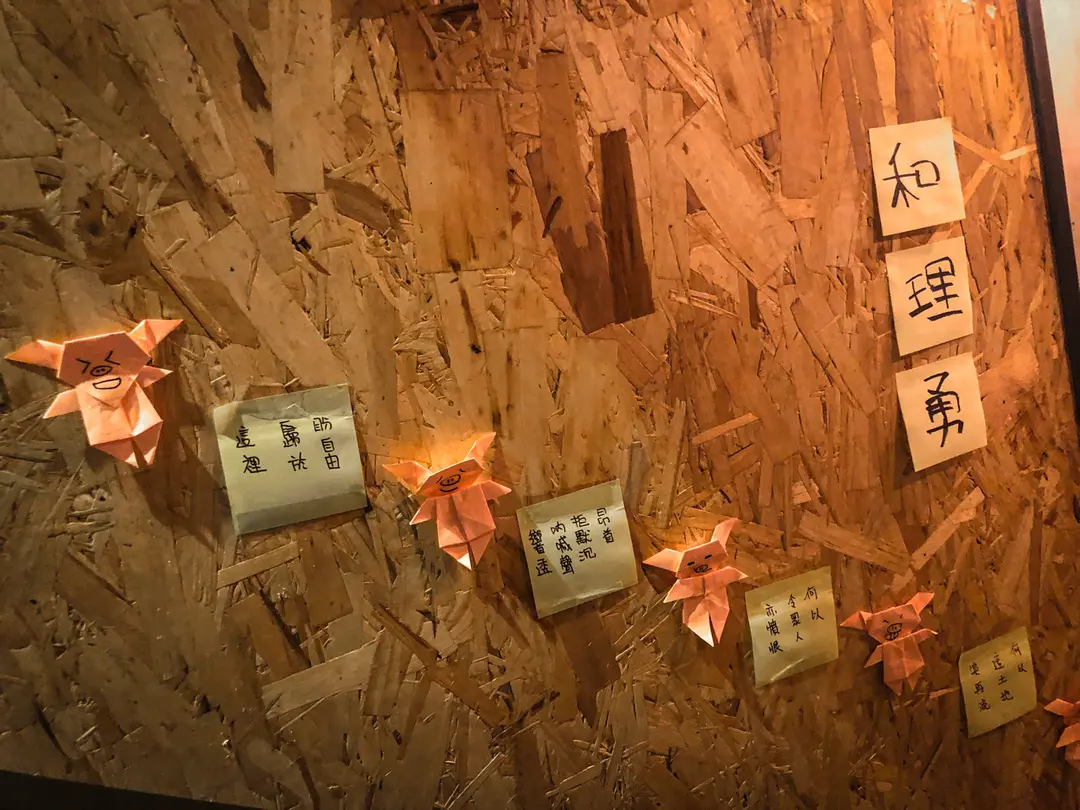 和
理
勇
何以
這土地
淚再流
何以
令眾人
亦憤恨
昂首
拒默沉
吶喊聲
響透
盼自由
歸於
這裡